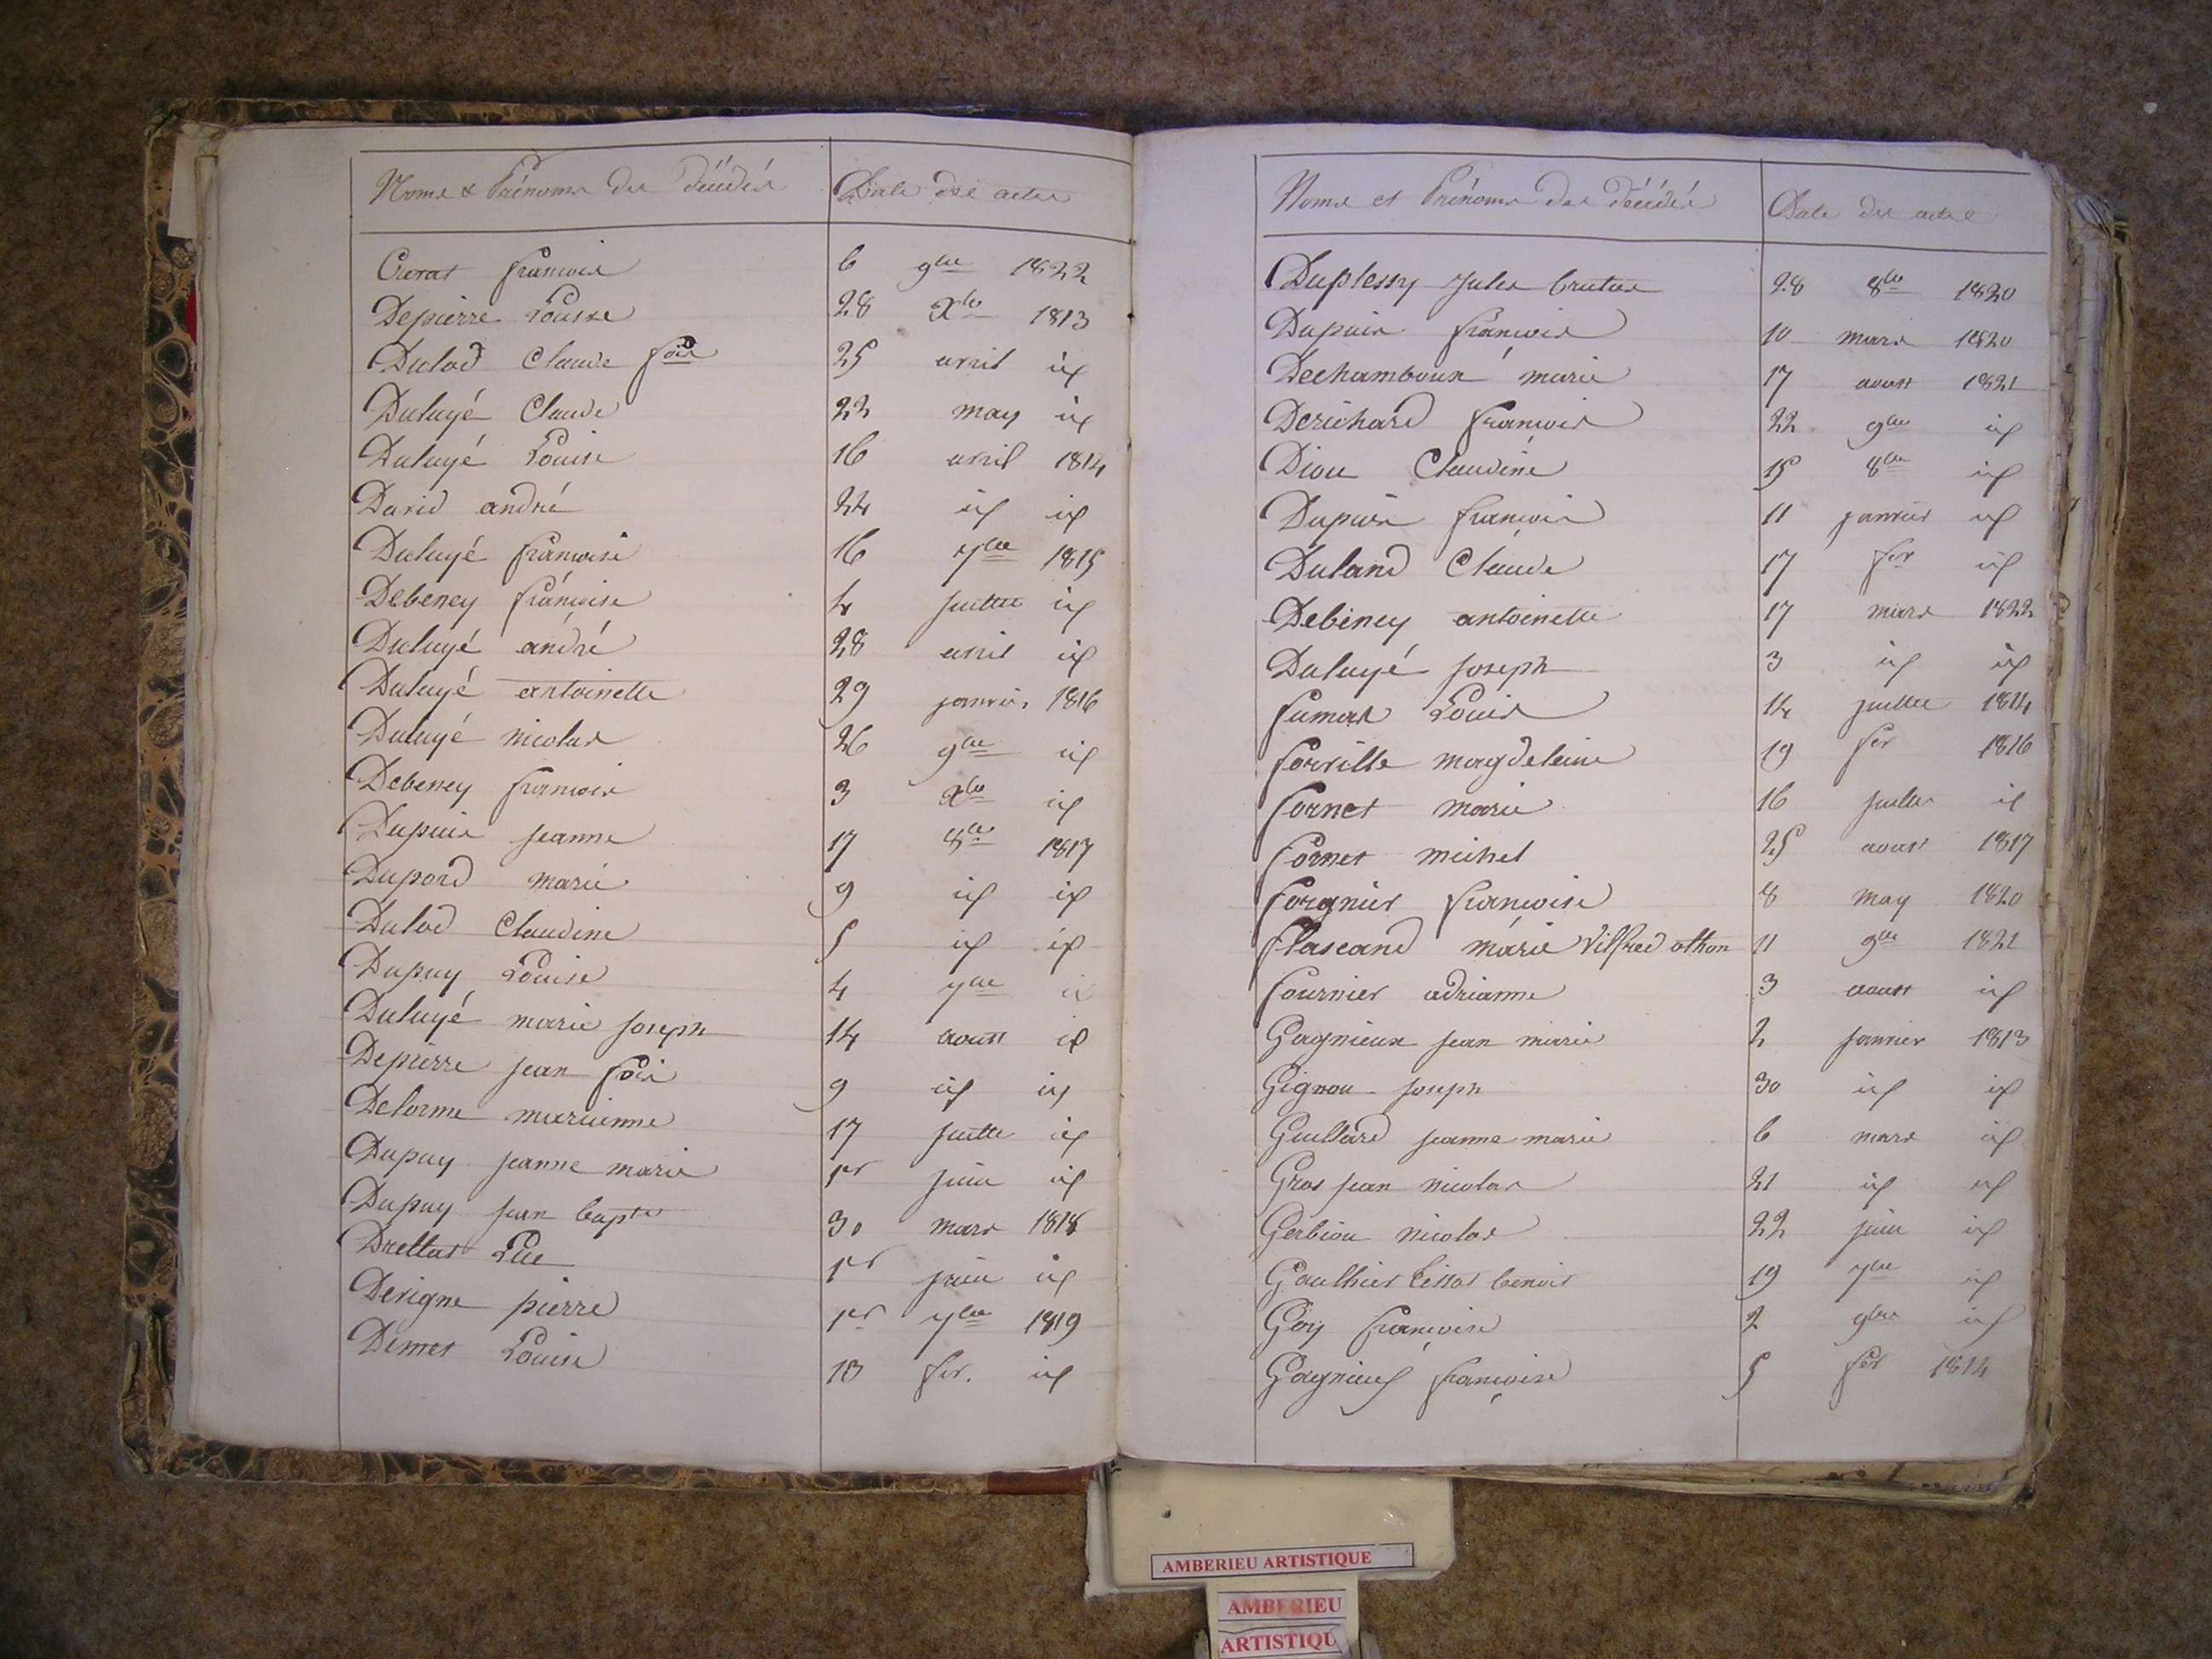 Noms & Prénoms des Décédés Date des actes
Curat françois 6 9bre 1822
Depierre Louise 28 Xbre 1813
Dulad Claude fois 25 avril id
Duluyé Claude 22 may id
Duluyé Louise 16 avril 1814
David andré 24 id id
Duluyé françoise 16 7bre 1815
Debeney françoise 4 juillet id
Duluyé andré 28 avril id
Duluyé antoinette 29 janvier 1816
Duluyé nicolas 26 9bre id
Debeney françois 3 Xbre id
Dupuis jeanne 17 8bre 1817
Dupord marie 9 id id
Dulad Claudine 5 id id
Dupuy Louise 4 7bre id
Duluyé marie joseph 14 aoust id
Depierre jean fois 9 id id
Delorme marianne 17 juillet id
Dupuy jeanne marie 1er juin id
Dupuy jean bapte 30 mars 1818
Drettat 1er juin id
Derigne pierre 1er 7bre 1819
Demet Louise 13 fer. id
Noms et Prénoms des Décédés Date des actes
Duplessy jules brutus 28 8bre 1820
Dupuis françois 10 mars 1820
Dechamboux marie 17 aoust 1821
Derichard françois 22 9bre id
Diou Claudine 15 8bre id
Dupuis françois 11 janvier id
Duland Claude 17 fer id
Debeney antoinette 17 mars 1822
Duluyé joseph 3 id id
fumas Louis 14 juillet 1814
forville magdeleine 19 fer 1816
fornet marie 16 juillet id
fornet michel 25 aoust 1817
forgnier françoise 8 may 1820
flaseand marie Vilfred othon 11 9bre 1821
fournier adrianne 3 aoust id
Gagnieux jean marie 2 janvier 1813
Gignou joseph 30 id id
Guillard jeanne marie 6 mars id
Gros jean nicolas 21 id id
Gerbiou nicolas 22 juin id
Gaulthier tissot benoit 19 7bre id
Goy françoise 2 9bre id
Gagnieux françoise 5 fer 1814
AMBERIEU ARTISTIQUE
AMBERIEU
ARTISTIQU